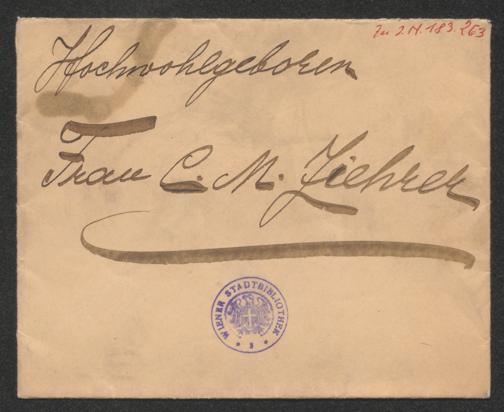 Zu I.N. 183.263
Hochwohlgeboren
Frau C. M. Ziehrer
WIENER STADTBIBLIOTHEK